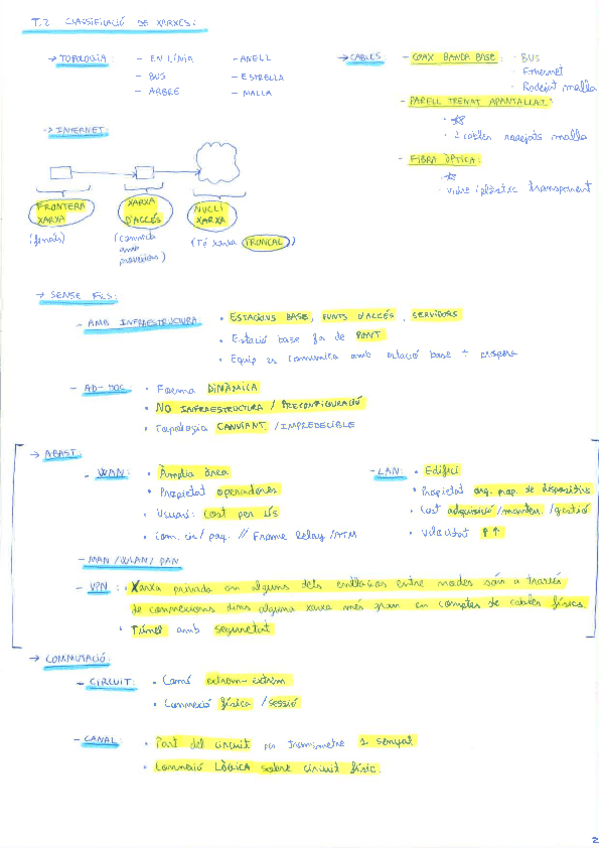 T.2 CLASSIFICACIÓ DE XARXES:
→ TOPOLOGIA: - EN LÍNIA - ANELL
- BUS - ESTRELLA
- ARBRE - MALLA
→ CABLES - COAX BANDA BASE: · BUS
· Ethernet
· Rodejat malla
- PARELL TRENAT APANTALLAT:
· ☆
· 2 cables rodejats malla
- FIBRA ÒPTICA:
· ☆
· vidre i plàstic transparent
→ INTERNET:
FRONTERA XARXA
(finals)
XARXA D'ACCÉS
(connecta amb proveïdors)
NUCLI XARXA
(Té xarxa TRONCAL)
→ SENSE FILS:
- AMB INFRAESTRUCTURA: · ESTACIONS BASE, PUNTS D'ACCÉS, SERVIDORS
· Estació base fa de PONT
· Equip es comunica amb estació base + propera
- AD-HOC · Forma DINÀMICA
· NO INFRAESTRUCTURA / PRECONFIGURACIÓ
· Topologia CANVIANT / IMPREDECIBLE
→ ABAST:
- WAN: · Àmplia àrea
· Propietat operadores
· Usuari: cost per ús
· Com. cir/paq. // Frame Relay/ATM
- LAN: · Edifici
· Propietat org. prop. de dispositius
· Cost adquisició/manten./gestió
· Velocitat ↑↑
- MAN/WLAN/PAN
- VPN: · Xarxa privada on alguns dels enllaços entre nodes són a través
de connexions dins alguna xarxa més gran en comptes de cables físics.
· Túnel amb seguretat
→ COMMUTACIÓ:
- CIRCUIT: · Camí extrem-extrem
· Connexió física / sessió
- CANAL: · Part del circuit per transmetre 1 senyal
· Connexió LÒGICA sobre circuit físic.
2